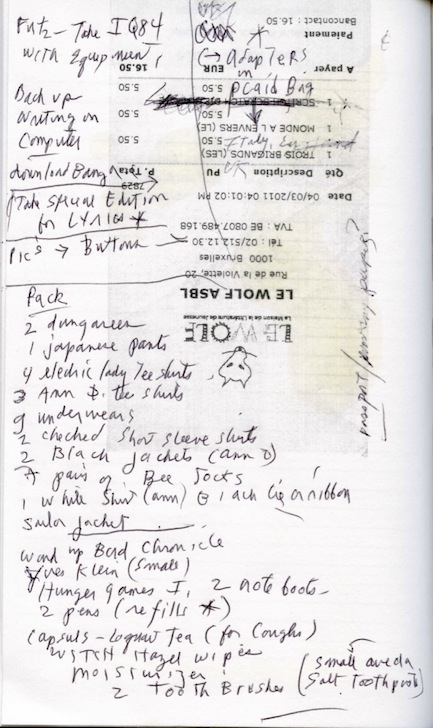 Futz - Take IQ84 *
with Equipment, (→ adapters
in
plaid Bag
Back up
writing on
Computer
download Bang
Take special Edition
for Lyrics *
Pics → Buttons
passport/
Bancontact : 16.50
Paiement
A payer EUR 16.50
1 5.50 5.50
1 MONDE A L ENVERS (LE) 5.50 5.50
1 TROIS BRIGANDS (LES) 5.50 5.50
Qté Description PU P. Tota
7829
Date 04/03/2011 04:01:02 PM
TVA : BE 0807.489.168
Tél : 02/512.12.30
1000 Bruxelles
Rue de la Violette, 20
LE WOLF ASBL
La Maison de la Littérature de Jeunesse
LE WOLF
Pack
2 dungarees
1 japanese pants
4 electric lady Tee shirts
3 Ann D. tee shirts
9 underwears
2 checked short sleeve shirts
2 Black jackets (ann D)
7 pairs of Bee socks
1 white shirt (ann) Black tie or ribbon
sailor jacket
wind up Bird Chronicle
Yves Klein (small)
Hunger games I, 2 note books
2 pens (refills *)
capsuls - Logwa Tea (for Coughs)
WITCH Hazel wipes
moisturizer
2 Tooth Brushes (small aveda
salt toothpaste)